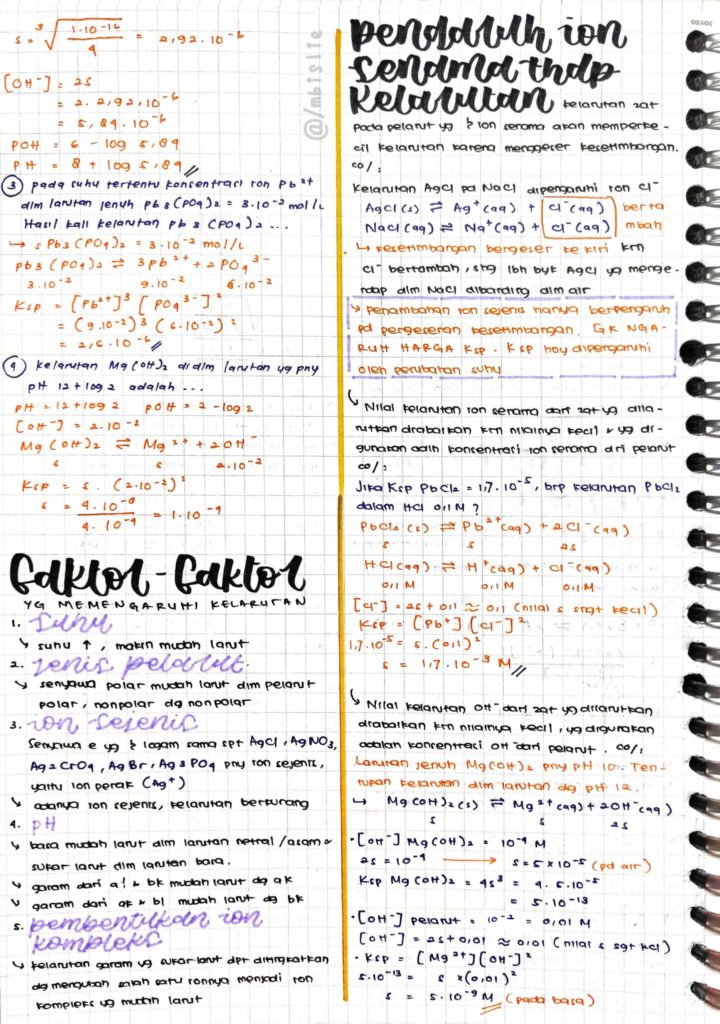 s = ³√(1.10⁻¹⁶/4) = 2,92.10⁻⁶
[OH⁻] = 2s
= 2. 2,92.10⁻⁶
= 5,84.10⁻⁶
POH = 6 - log 5,84
PH = 8 + log 5,84
③ pada suhu tertentu konsentrasi ion Pb²⁺
dlm larutan jenuh Pb3(PO4)2 = 3.10⁻² mol/L
Hasil kali kelarutan Pb3(PO4)2 ...
↳ s Pb3(PO4)2 = 3.10⁻² mol/L
Pb3(PO4)2 ⇌ 3Pb²⁺ + 2PO4³⁻
3.10⁻² 9.10⁻² 6.10⁻²
Ksp = [Pb²⁺]³ [PO4³⁻]²
= (9.10⁻²)³ (6.10⁻²)²
= 2,6.10⁻⁶
④ kelarutan Mg(OH)2 di dlm larutan yg pny
pH 12 + log 2 adalah ...
pH = 12 + log 2 pOH = 2 - log 2
[OH⁻] = 2.10⁻²
Mg(OH)2 ⇌ Mg²⁺ + 2OH⁻
s s 2.10⁻²
Ksp = s. (2.10⁻²)²
s = 4.10⁻⁸/4.10⁻⁴ = 1.10⁻⁴
faktor-faktor
YG MEMENGARUHI KELARUTAN
1. suhu
↳ suhu ↑, makin mudah larut
2. jenis pelarut
↳ senyawa polar mudah larut dlm pelarut
polar, nonpolar dg nonpolar
3. ion sejenis
Senyawa e yg logam sama spt AgCl, AgNO3,
Ag2CrO4, AgBr, Ag3PO4 pny ion sejenis,
yaitu ion perak (Ag⁺)
↳ adanya ion sejenis, kelarutan berkurang
4. pH
↳ basa mudah larut dlm larutan netral/asam &
sukar larut dlm larutan basa.
↳ garam dari al & bk mudah larut dg ak
↳ garam dari ak & bl mudah larut dg bk
5. pembentukan ion
kompleks
↳ kelarutan garam yg sukar larut dpt ditingkatkan
dg mengubah salah satu ionnya menjadi ion
kompleks yg mudah larut
@/mbislie
pengaruh ion
senama thdp
kelarutan kelarutan zat
pada pelarut yg ion senama akan memperke-
cil kelarutan karena menggeser kesetimbangan.
co/:
Kelarutan AgCl pd NaCl dipengaruhi ion Cl⁻
AgCl(s) ⇌ Ag⁺(aq) + Cl⁻(aq) berta
NaCl(aq) ⇌ Na⁺(aq) + Cl⁻(aq) mbah
↳ kesetimbangan bergeser ke kiri krn
Cl⁻ bertambah, shg lbh byk AgCl yg menge-
ndap dlm NaCl dibanding dlm air
↳ penambahan ion sejenis hanya berpengaruh
pd pergeseran kesetimbangan. GK NGA-
RUH HARGA KSP. KSP hny dipengaruhi
oleh perubahan suhu
↳ Nilai kelarutan ion senama dari zat yg dila-
rutkan diabaikan krn nilainya kecil & yg di-
gunakan adlh konsentrasi ion senama dri pelarut
co/:
Jika Ksp PbCl2 = 1,7.10⁻⁵, brp kelarutan PbCl2
dalam HCl 0,1 M ?
PbCl2(s) ⇌ Pb²⁺(aq) + 2Cl⁻(aq)
s s 2s
HCl(aq) ⇌ H⁺(aq) + Cl⁻(aq)
0,1 M 0,1 M 0,1 M
[Cl⁻] = 2s + 0,1 ≈ 0,1 (nilai s sngt kecil)
Ksp = [Pb⁺] [Cl⁻]²
1,7.10⁻⁵ = s. (0,1)²
s = 1,7.10⁻³ M
↳ Nilai kelarutan OH⁻ dari zat yg dilarutkan
diabaikan krn nilainya kecil, yg digunakan
adalah konsentrasi OH⁻ dari pelarut. co/:
Larutan jenuh Mg(OH)2 pny pH 10. Ten-
tukan kelarutan dlm larutan dg pH 12!
↳ Mg(OH)2(s) ⇌ Mg²⁺(aq) + 2OH⁻(aq)
s s 2s
•[OH⁻] Mg(OH)2 = 10⁻⁴ M
2s = 10⁻⁴ → s = 5×10⁻⁵ (pd air)
Ksp Mg(OH)2 = 4s³ = 4. 5.10⁻⁵
= 5.10⁻¹³
•[OH⁻] pelarut = 10⁻² = 0,01 M
[OH⁻] = 2s + 0,01 ≈ 0,01 (nilai s sgt kcl)
• Ksp = [Mg²⁺][OH⁻]²
5.10⁻¹³ = s × (0,01)²
s = 5.10⁻⁹ M (pada basa)